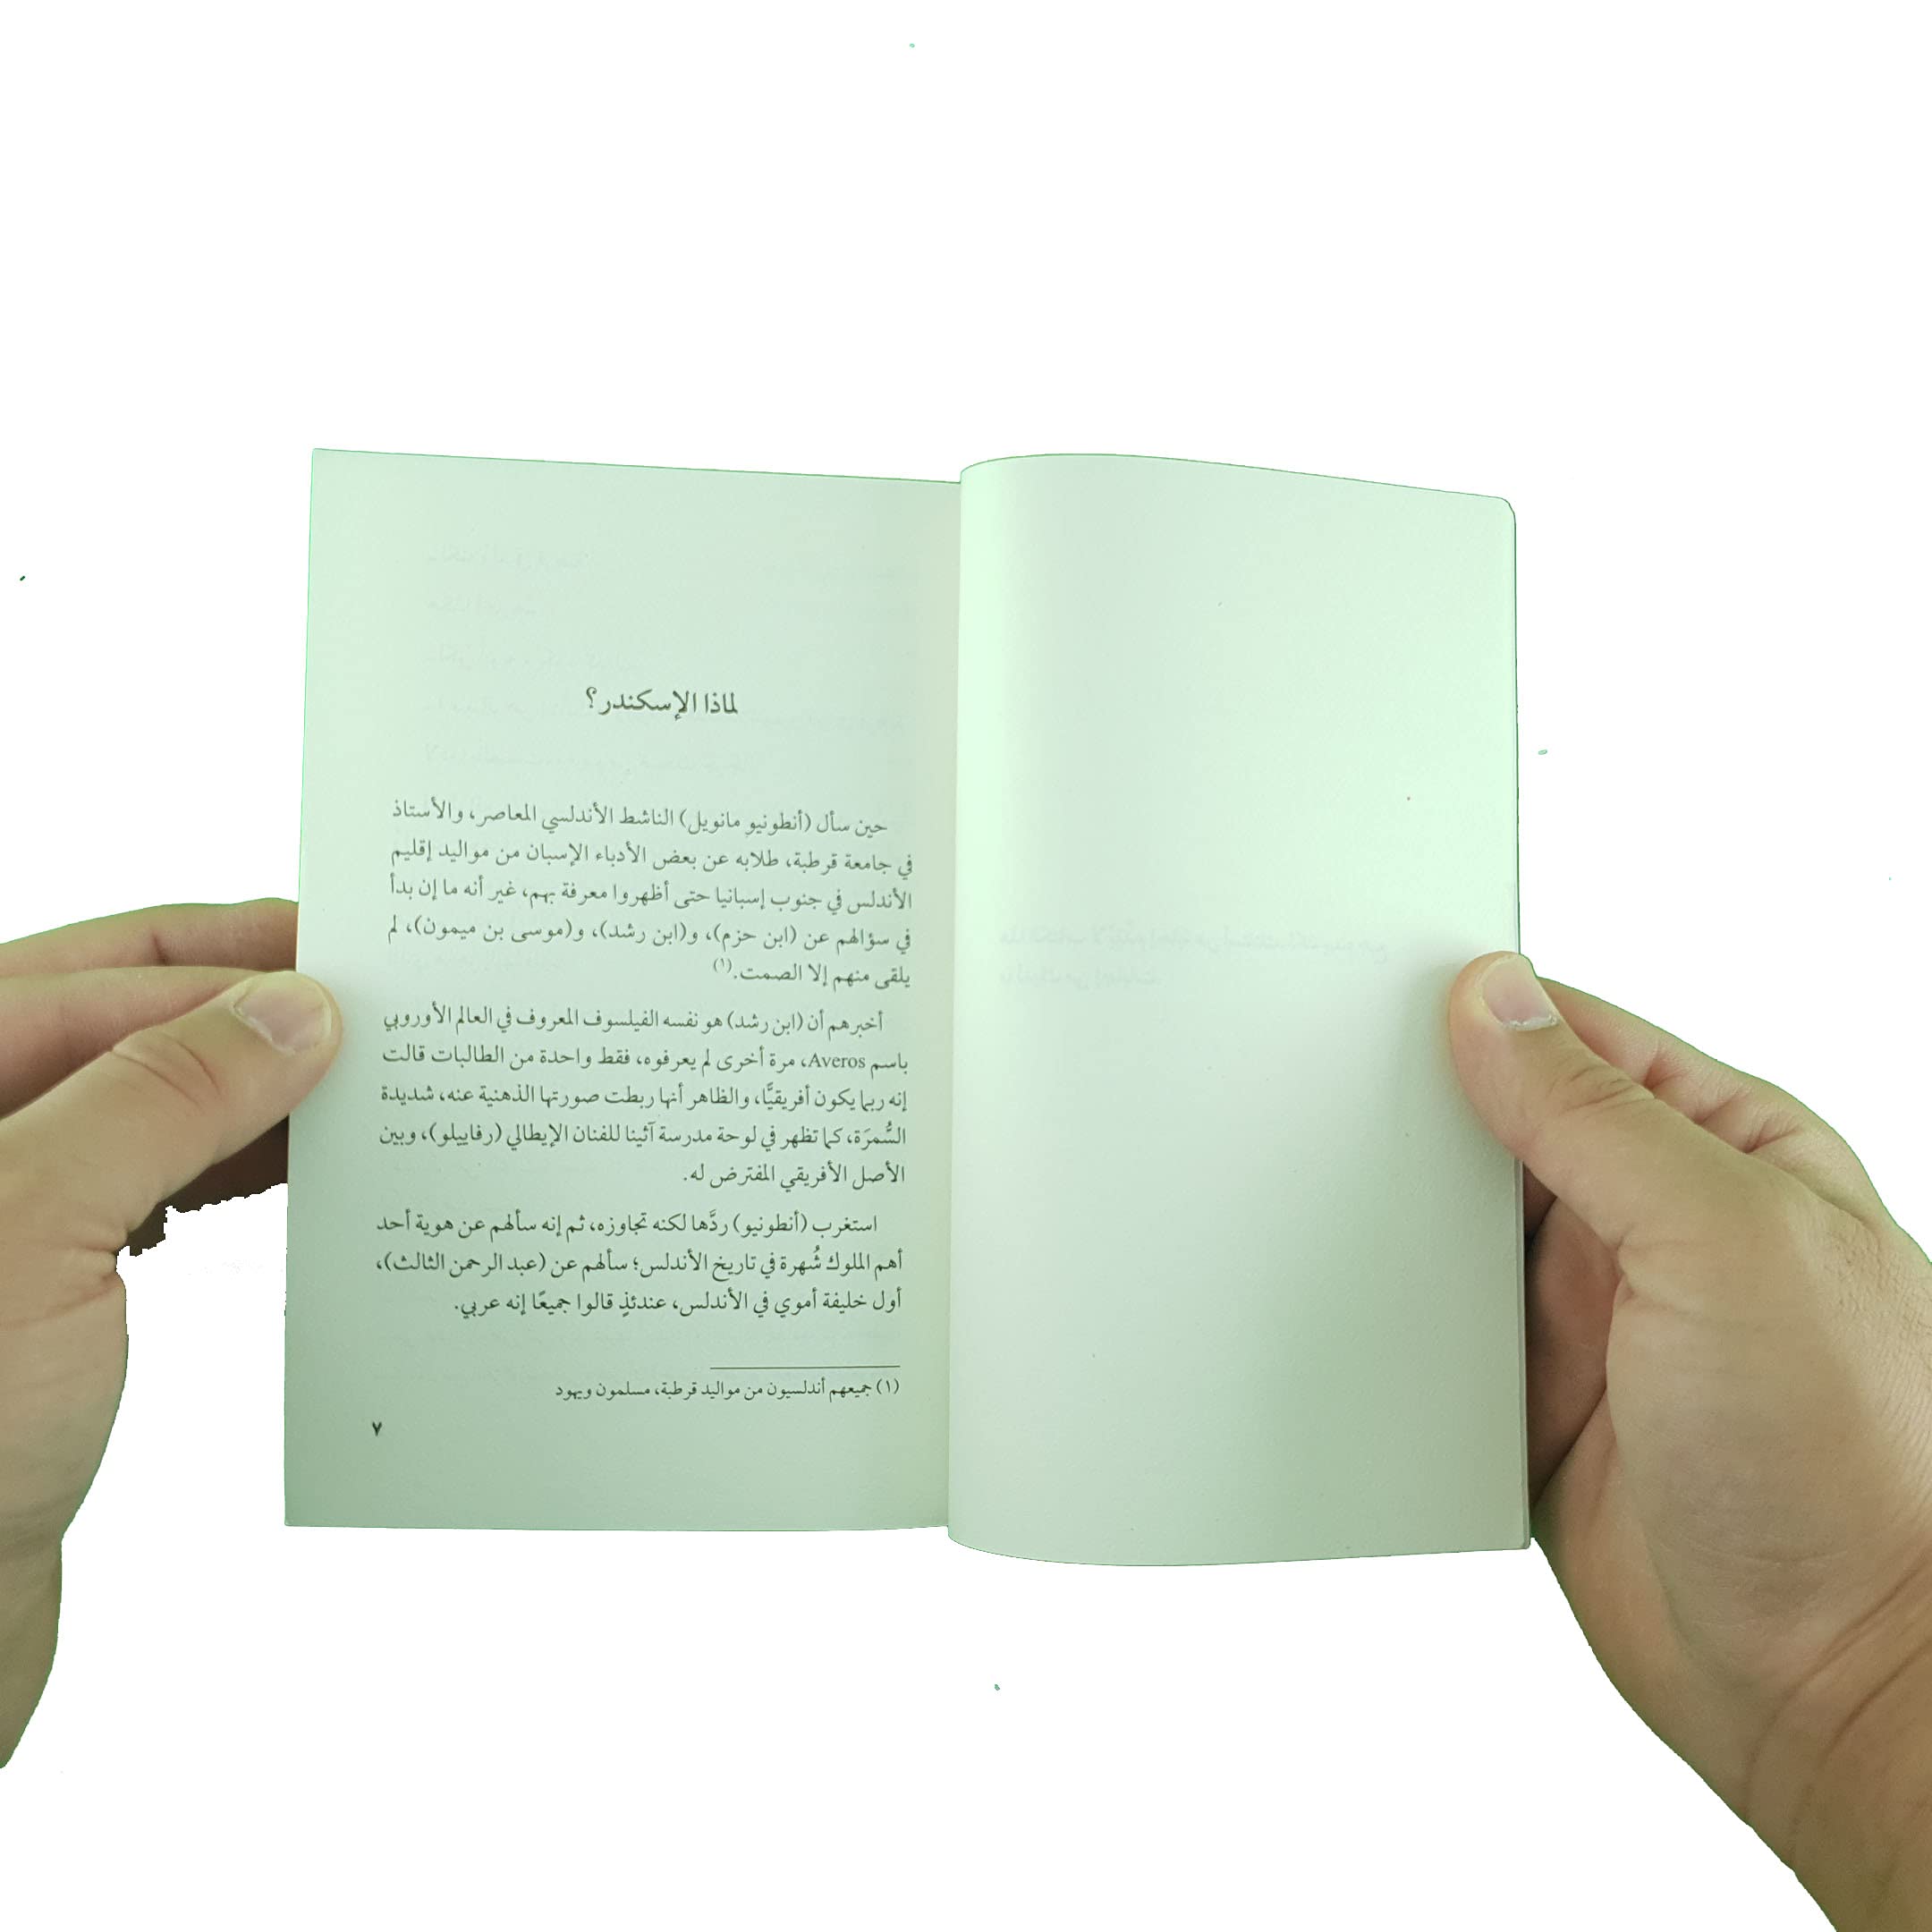 لماذا الإسكندر؟
حين سأل (أنطونيو مانويل) الناشط الأندلسي المعاصر، والأستاذ
في جامعة قرطبة، طلابه عن بعض الأدباء الإسبان من مواليد إقليم
الأندلس في جنوب إسبانيا حتى أظهروا معرفة بهم، غير أنه ما إن بدأ
في سؤالهم عن (ابن حزم)، و(ابن رشد)، و(موسى بن ميمون)، لم
يلقى منهم إلا الصمت.(١)
أخبرهم أن (ابن رشد) هو نفسه الفيلسوف المعروف في العالم الأوروبي
باسم Averos، مرة أخرى لم يعرفوه، فقط واحدة من الطالبات قالت
إنه ربما يكون أفريقيًّا، والظاهر أنها ربطت صورتها الذهنية عنه، شديدة
السُّمرَة، كما تظهر في لوحة مدرسة آثينا للفنان الإيطالي (رفاييلو)، وبين
الأصل الأفريقي المفترض له.
استغرب (أنطونيو) ردَّها لكنه تجاوزه، ثم إنه سألهم عن هوية أحد
أهم الملوك شُهرة في تاريخ الأندلس؛ سألهم عن (عبد الرحمن الثالث)،
أول خليفة أموي في الأندلس، عندئذٍ قالوا جميعًا إنه عربي.
(١) جميعهم أندلسيون من مواليد قرطبة، مسلمون ويهود
٧